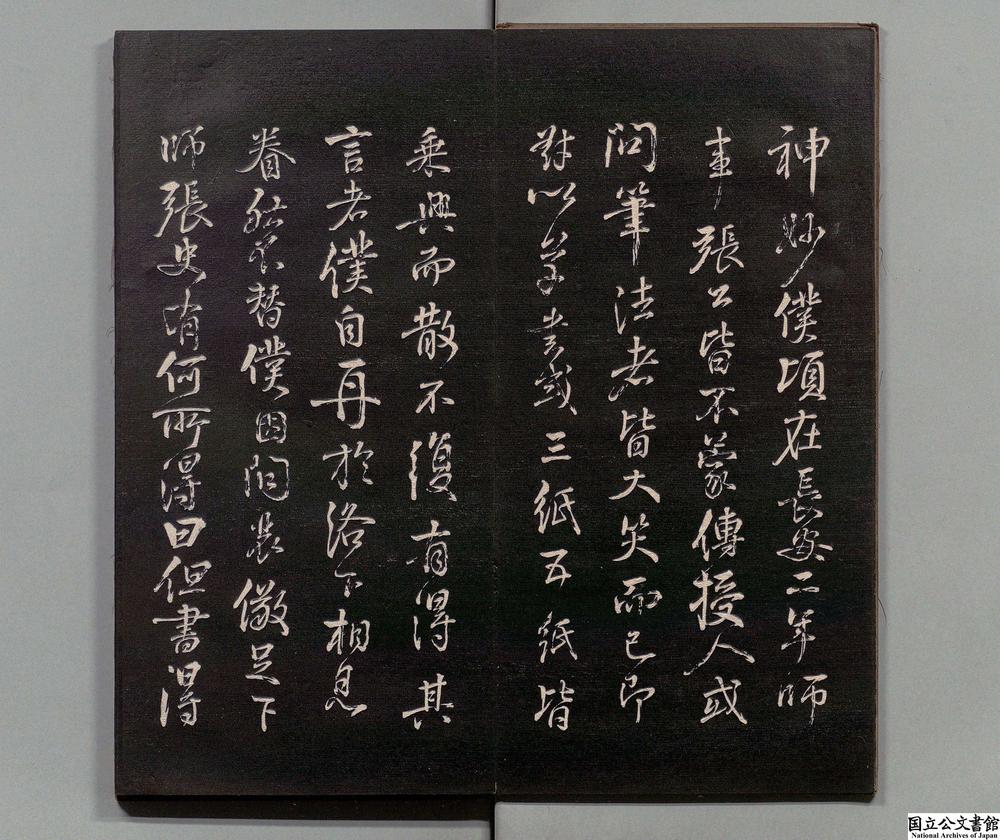 神妙僕頃在長安二年師
事張公皆不蒙傳授人或
問筆法者皆大笑而已即
對以草書或三紙五紙皆
乘興而散不復有得其
言者僕自再於洛下相見
眷然不替僕因問裴儆足下
師張史有何所得曰但書得
国立公文書館
National Archives of Japan